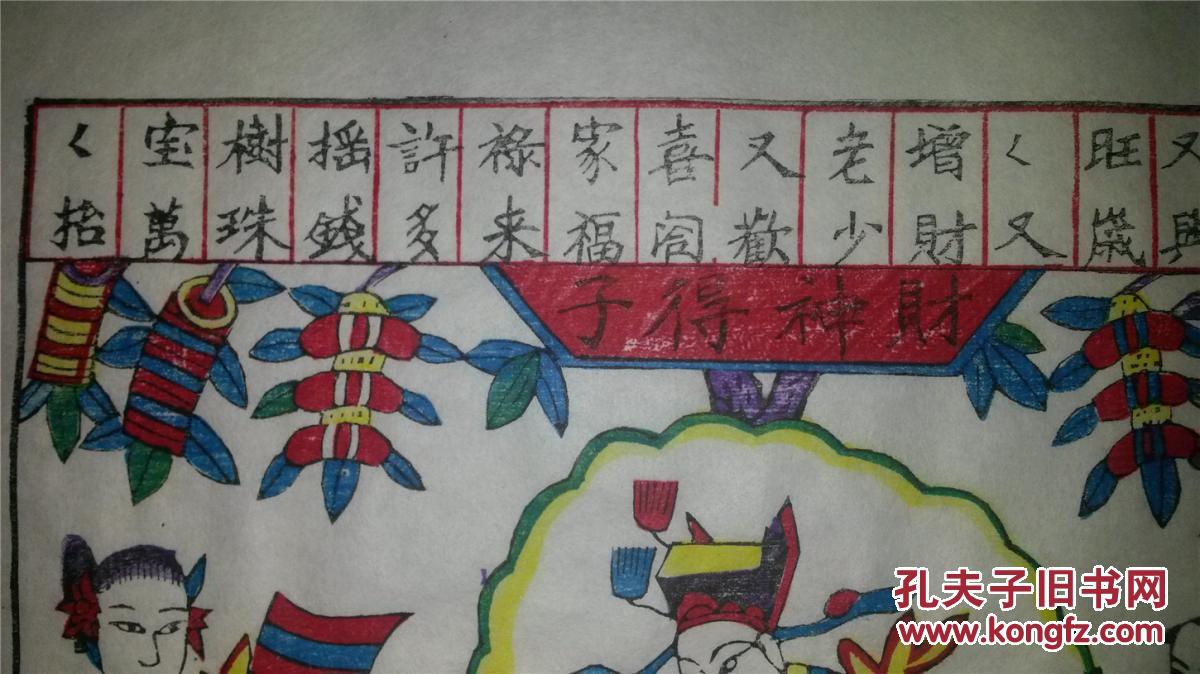 又興
旺歲
〱又
增財
老少
又歡
喜閤
家福
祿来
許多
摇銭
樹珠
宝萬
〱抬
財神得子
孔夫子旧书网
www.kongfz.com